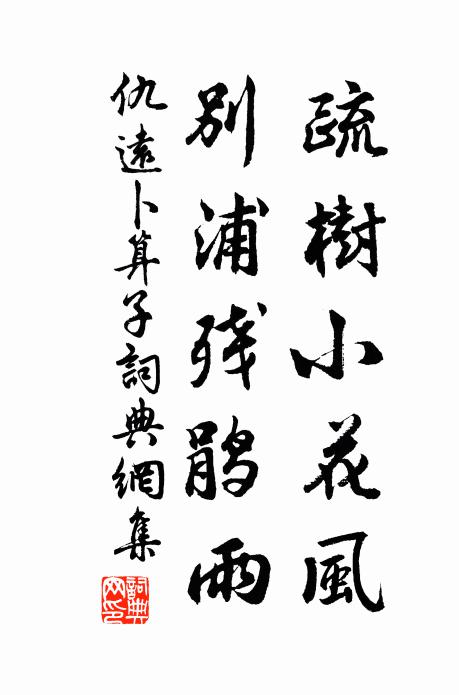 疏樹小花風
別浦残鵑雨
仇遠卜算子詞典網集
詞典網印